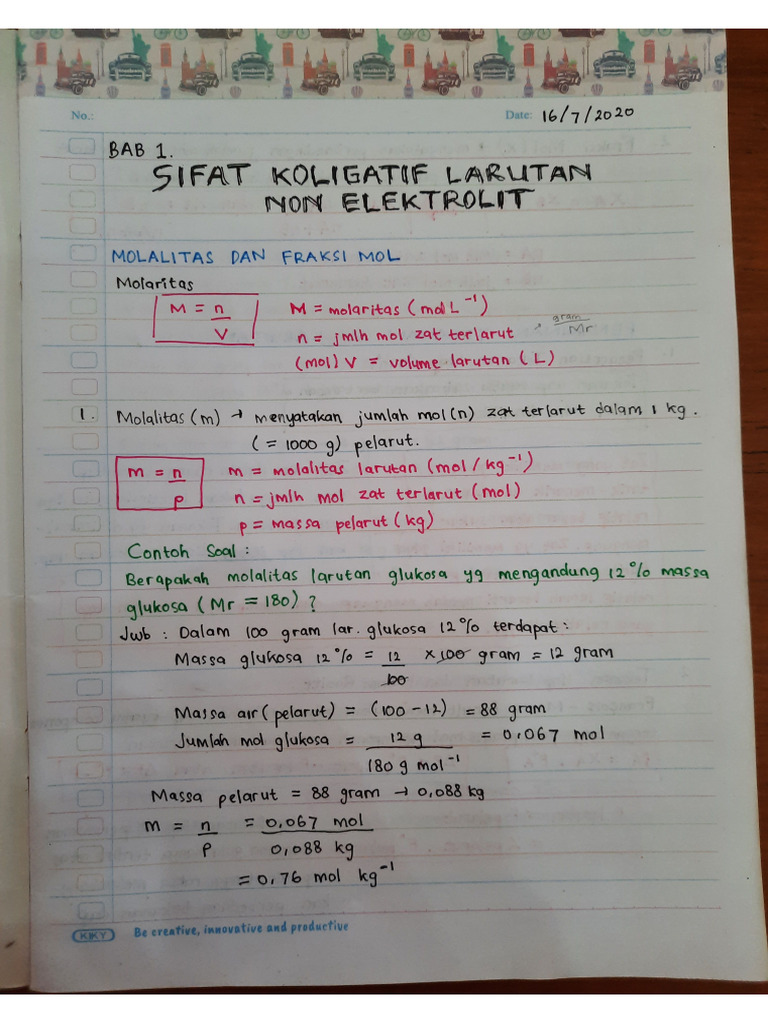 No.:
Date: 16/7/2020
BAB 1.
SIFAT KOLIGATIF LARUTAN
NON ELEKTROLIT
MOLALITAS DAN FRAKSI MOL
Molaritas
M = n/V
M = molaritas (mol L⁻¹)
n = jmlh mol zat terlarut gram/Mr
(mol) V = volume larutan (L)
1. Molalitas (m) → menyatakan jumlah mol (n) zat terlarut dalam 1 kg.
(= 1000 g) pelarut.
m = n/p
m = molalitas larutan (mol/kg⁻¹)
n = jmlh mol zat terlarut (mol)
p = massa pelarut (kg)
Contoh Soal :
Berapakah molalitas larutan glukosa yg mengandung 12% massa
glukosa (Mr = 180) ?
Jwb : Dalam 100 gram lar. glukosa 12% terdapat :
Massa glukosa 12% = 12/100 × 100 gram = 12 gram
Massa air (pelarut) = (100 - 12) = 88 gram
Jumlah mol glukosa = 12 g/180 g mol⁻¹ = 0,067 mol
Massa pelarut = 88 gram → 0,088 kg
m = n/p = 0,067 mol/0,088 kg
= 0,76 mol kg⁻¹
KIKY Be creative, innovative and productive